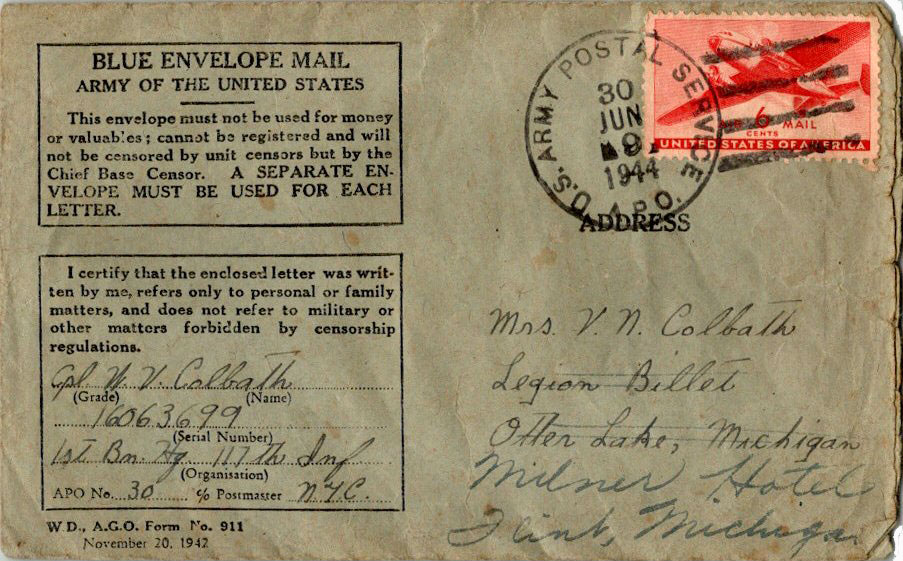 BLUE ENVELOPE MAIL
ARMY OF THE UNITED STATES
This envelope must not be used for money
or valuables; cannot be registered and will
not be censored by unit censors but by the
Chief Base Censor. A SEPARATE EN-
VELOPE MUST BE USED FOR EACH
LETTER.
I certify that the enclosed letter was writ-
ten by me, refers only to personal or family
matters, and does not refer to military or
other matters forbidden by censorship
regulations.
Cpl. N. V. Colbath
(Grade) (Name)
16063699
(Serial Number)
1st Bn. Hq. 117th Inf
(Organisation)
APO No. 30 c/o Postmaster N.Y.C.
W.D., A.G.O. Form No. 911
November 20, 1942
U.S. ARMY POSTAL SERVICE
A.P.O.
30
JUN
9
1944
6
CENTS
MAIL
UNITED STATES OF AMERICA
ADDRESS
Mrs. V. N. Colbath
Legion Billet
Otter Lake, Michigan
Milner Hotel
Flint, Michigan